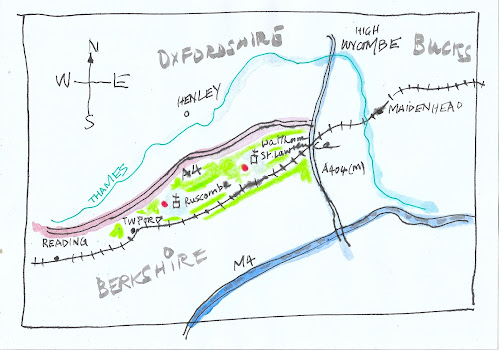 OXFORDSHIRE
HIGH
WYCOMBE
BUCKS
N
W E
S
HENLEY
MAIDENHEAD
THAMES
A4
Waltham
St. Lawrence
A404(M)
Ruscombe
TWYFORD
READING
BERKSHIRE
M4